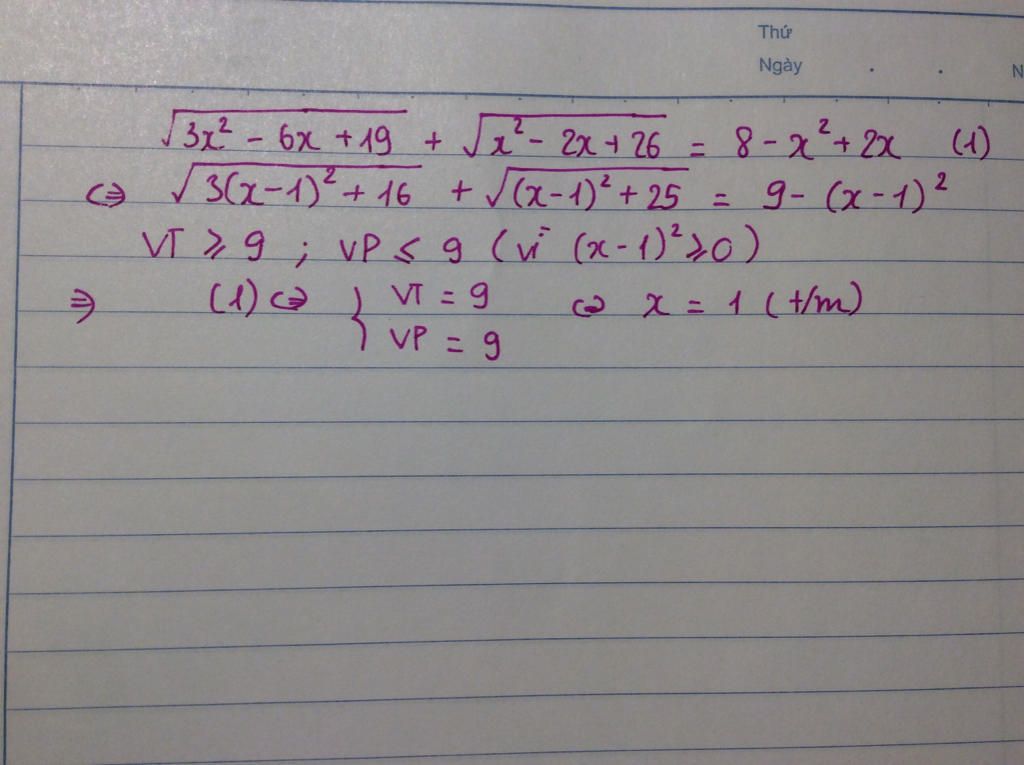 Thứ
Ngày . . N
√(3x² - 6x + 19) + √(x² - 2x + 26) = 8 - x² + 2x (1)
⇔ √(3(x-1)² + 16) + √((x-1)² + 25) = 9 - (x-1)²
VT ≥ 9 ; VP ≤ 9 (vì (x-1)² ≥ 0)
⇒ (1) ⇔ { VT = 9 ⇔ x = 1 (t/m)
VP = 9